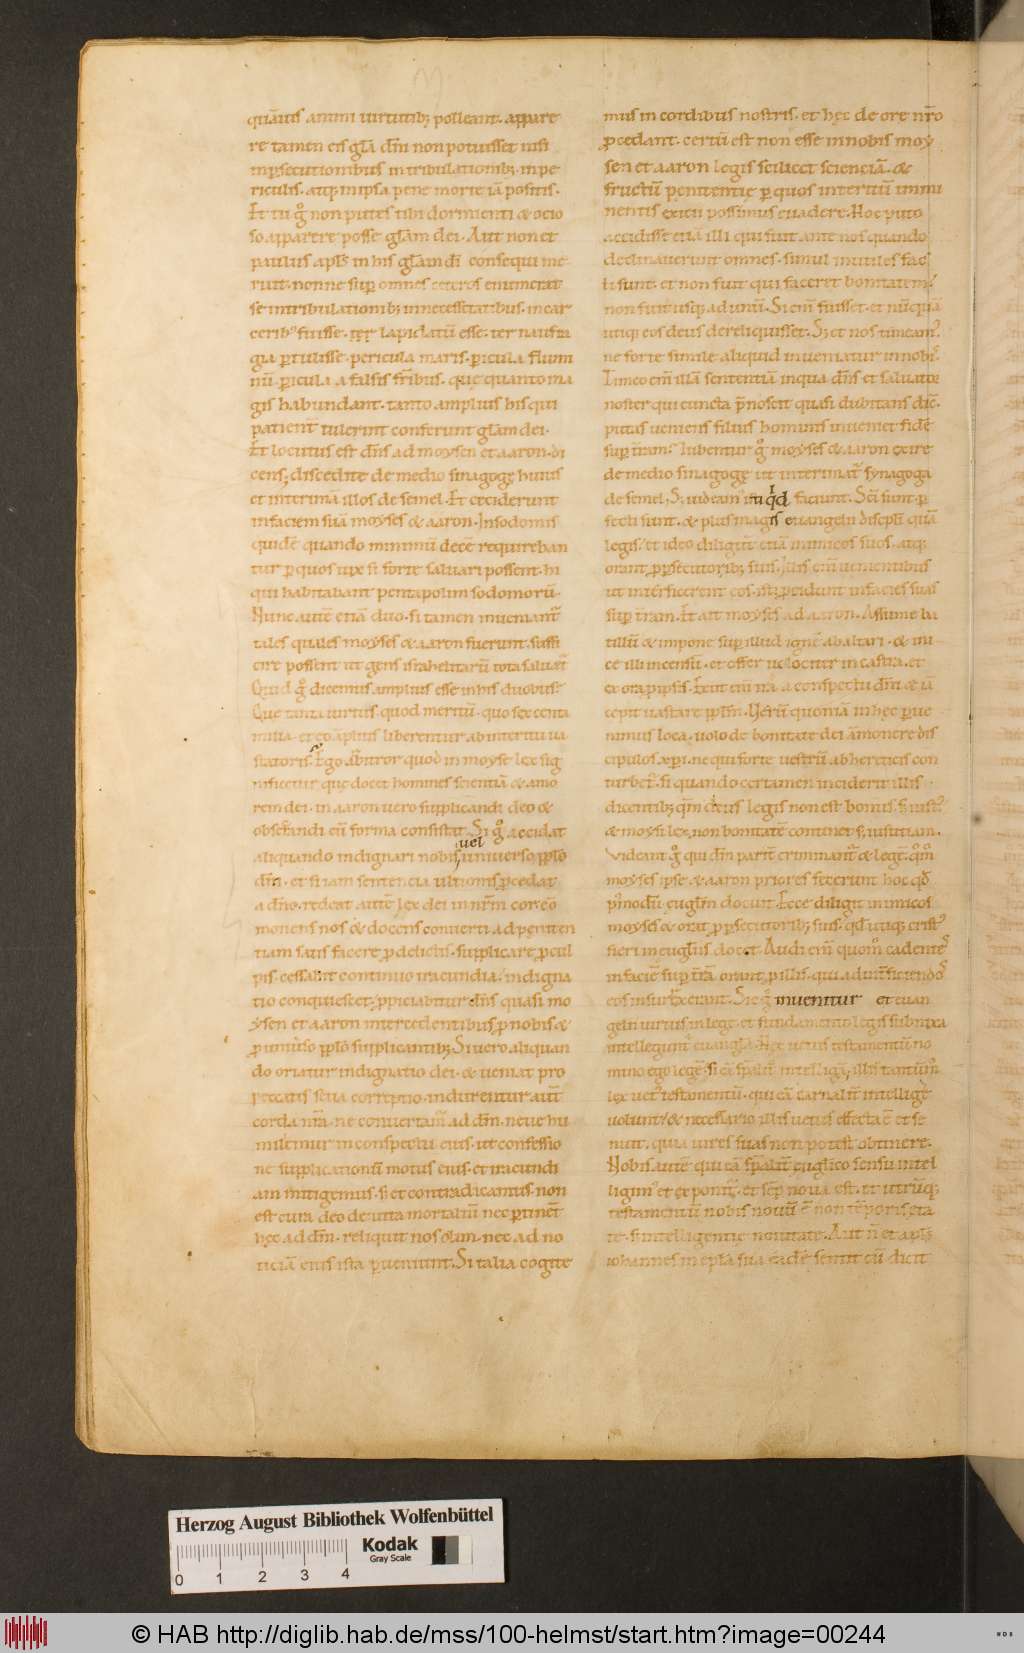 quāuis animi uirtutibꝫ polleant. appare
re tamen eis gl̄a dn̄i non potuisset nisi
in ꝑsecutionibus in tribulationibꝫ. in pe
riculis. atqꝫ in ipsa pene morte iā positis.
Et tu gͦ non putes tibi dormienti & ocio
so apparere posse glam̄ dei. Aut non et
paulus apl̄s in his glam̄ dī consequi me
ruit. nonne suꝑ omnes ceteros enumerat
se in tribulationibꝫ in necessitatibus. in car
ceribꝰ fuisse. ter lapidatū esse. ter naufra
gia ꝑtulisse. pericula maris. ꝑicula flumi
nū. ꝑicula a falsis fr̄ibus. que quanto ma
gis habundant. tanto amplius his qui
patient̄ tulerint conferunt glam̄ dei.
Et locutus est dn̄s ad moysen et aaron. di
cens; discedite de medio sinagogę huius
et interima illos de semel. Et ceciderunt
in faciem suā moyses & aaron. In sodomis
quidē quando minimū decē requireban
tur ꝑ quos uix si forte saluari possent. hi
qui habitabant pentapolim sodomorū.
Nunc autē etiā duo. si tamen inueniant᷑
tales quales moyses & aaron fuerunt. suffi
cere possent ut gens israhelitarū tota saluaret᷑
Quid gͦ dicemus amplius esse in his duobus?
Que tanta uirtus. quod meritū. quo sexcenta
milia. et eo āplius liberentur ab interitu ua
statoris. Ego arbitror quod in moyse lex sig
nificetur que docet homines scientiā & amo
rem dei. in aaron uero supplicandi deo &
obsecrandi eū forma consistat. Si gͦ accidat
uel
aliquando indignari nobis uniuerso ppl̄o
dn̄m. et si iam sententia ultionis ꝓcedat
a dn̄o. redeat autē lex dei in nr̄m cor. eo
monens nos & docens conuerti ad peniten
tiam satis facere ꝓ delictis. supplicare ꝓ cul
pis. cessabit continuo iracundia. indigna
tio conquiescet. ꝓpiciabitur dn̄s quasi mo
ysen et aaron intercedentibus ꝓ nobis &
ꝓ uniūso ppl̄o supplicantibꝫ. Si uero aliquan
do oriatur indignatio dei. & ueniat pro
peccatis seua correptio. indurentur aut̄
corda nr̄a. ne conuertam᷑ ad dn̄m. neue hu
miliemur in conspectu eius. ut confessio
ne supplicationū motus eius. et iracundi
am mitigemus. si et contradicamus. non
est cura deo de uita mortaliū nec ꝑtinet̄
hęc ad dn̄m. reliquit nos olim. nec ad no
ticiā eius ista ꝑueniunt. Si talia cogite
mus in cordibus nostris. et hęc de ore nr̄o
ꝓcedant. certū est non esse in nobis moy
sen et aaron legis scilicet scienciā. &
fructū penitentię ꝑ quos interitū immi
nentis exitii possimus euadere. Hoc puto
accidisse etiā illi qui fuit ante nos quando
declinauerunt omnes. simul inutiles fac
ti sunt. et non fuit qui faceret bonitatem.
non fuit usqꝫ ad unū. Si enī fuisset. et nūquā
utiqꝫ eos deus dereliquisset. Sꝫ et nos timeamꝰ
ne forte simile aliquid inueniatur in nobis.
Timeo enī illā sententiā in qua dn̄s et saluator
noster qui cuncta p̄noscit quasi dubitans dic̄.
putas ueniens filius hominis inueniet fidē
suꝑ terram? libentur gͦ moyses & aaron exire
de medio sinagogę ut interimat᷑ synagoga
de semel; Sꝫ uideam᷑ qͥd faciunt. Sc̄i sunt. ꝑ
fecti sunt. & plus magis euangelii discpl̄i quā
legis. et ideo diligunt̄ etiā inimicos suos. atqꝫ
orant ꝓ ꝑsecutoribꝫ suis. Illis enī uenientibus
ut interficerent eos. isti ꝓcidunt in facies suas
suꝑ terram. Et ait moyses ad aaron. Assume ba
tillū & impone suꝑ illud ignē ab altari. & mi
ce illi incensū. et offer uelociter in castra. et
exora ꝓ ipsis. Exiit enī ira a conspectu dn̄i & iā
cepit uastare ppl̄m. Uerū quoniā in hęc ꝑue
nimus loca. uolo de bonitate dei āmonere dis
cipulos xp̄i. ne qui forte uestrū ab hereticis con
turbet᷑. si quando certamen inciderit illis
dicentibꝫ qm̄ deus legis non est bonus sꝫ iustꝰ
& moysi lex non bonitatē continet sꝫ iustitiam.
Videant gͦ qui dn̄m parit̄ criminant᷑ & legē. qm̄
moyses ipse & aaron priores fecerunt hoc qd̄
p̄ modū euglm̄ docuit. Ecce diligit inimicos
moyses & orat ꝓ ꝑsecutoribꝫ suis. qd̄ utiqꝫ cristꝰ
fieri in euglīis docet. Audi enī quom̄ cadentes
in faciē suꝑ tr̄ā orant ꝓ illis. qui ad interficiendos
eos insurrexerant. Sic gͦ inuenitur et euan
gelii uirtus in lege. et fundamento legis subnixa
intelleguntur euangl̄a. Nec uetus testamentū no
mino ego legē. si eā sp̄aliter intelligā. illis tantū
lex uetus testamentū. qui eā carnalit̄ intellige
uolunt. & necessario illis uetus effecta ē et se
nuit. quia uires suas non potest obtinere.
Nobis autē qui eā sp̄alit̄ euglico sensu intel
ligimꝰ et exponimꝰ. et semꝑ noua est. et utrūqꝫ
testamentū nobis nouū ē non tēporis eta
te. sꝫ intelligentię nouitate. Aut n̄ et apl̄s
iohannes in epl̄a sua eadē sentit cū dicit
Herzog August Bibliothek Wolfenbüttel
0 1 2 3 4
Kodak
Gray Scale
© HAB http://diglib.hab.de/mss/100-helmst/start.htm?image=00244